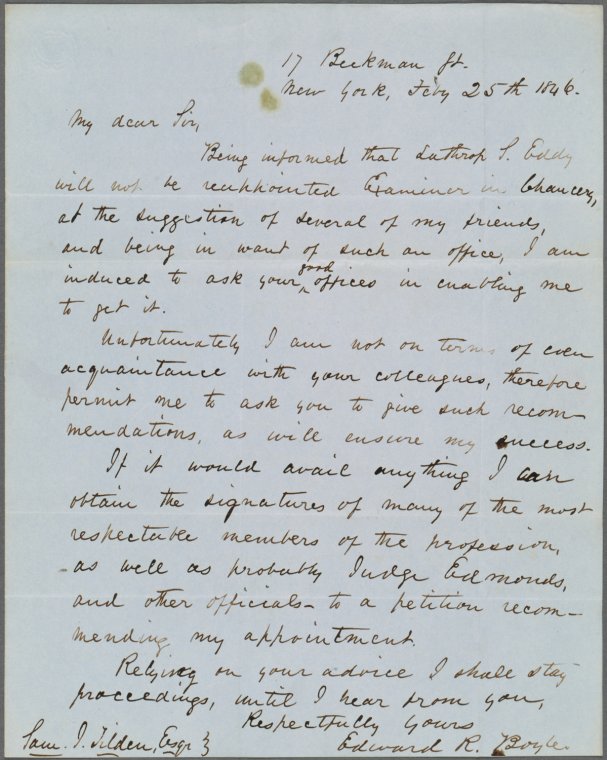 17 Beekman St.
New York, Feby 25th 1846.
My dear Sir,
Being informed that Lathrop S. Eddy
will not be reappointed Examiner in Chancery,
at the suggestion of several of my friends,
and being in want of such an office, I am
induced to ask your good offices in enabling me
to get it.
Unfortunately I am not on terms of even
acquaintance with your colleagues, therefore
permit me to ask you to give such recom-
mendations, as will ensure my success.
If it would avail anything I can
obtain the signatures of many of the most
respectable members of the profession,
as well as probably Judge Edmonds,
and other officials - to a petition recom-
mending my appointment.
Relying on your advice I shall stay
proceedings, until I hear from you,
Respectfully Yours
Edward R. Boyle.
Sam. J. Tilden, Esqr }